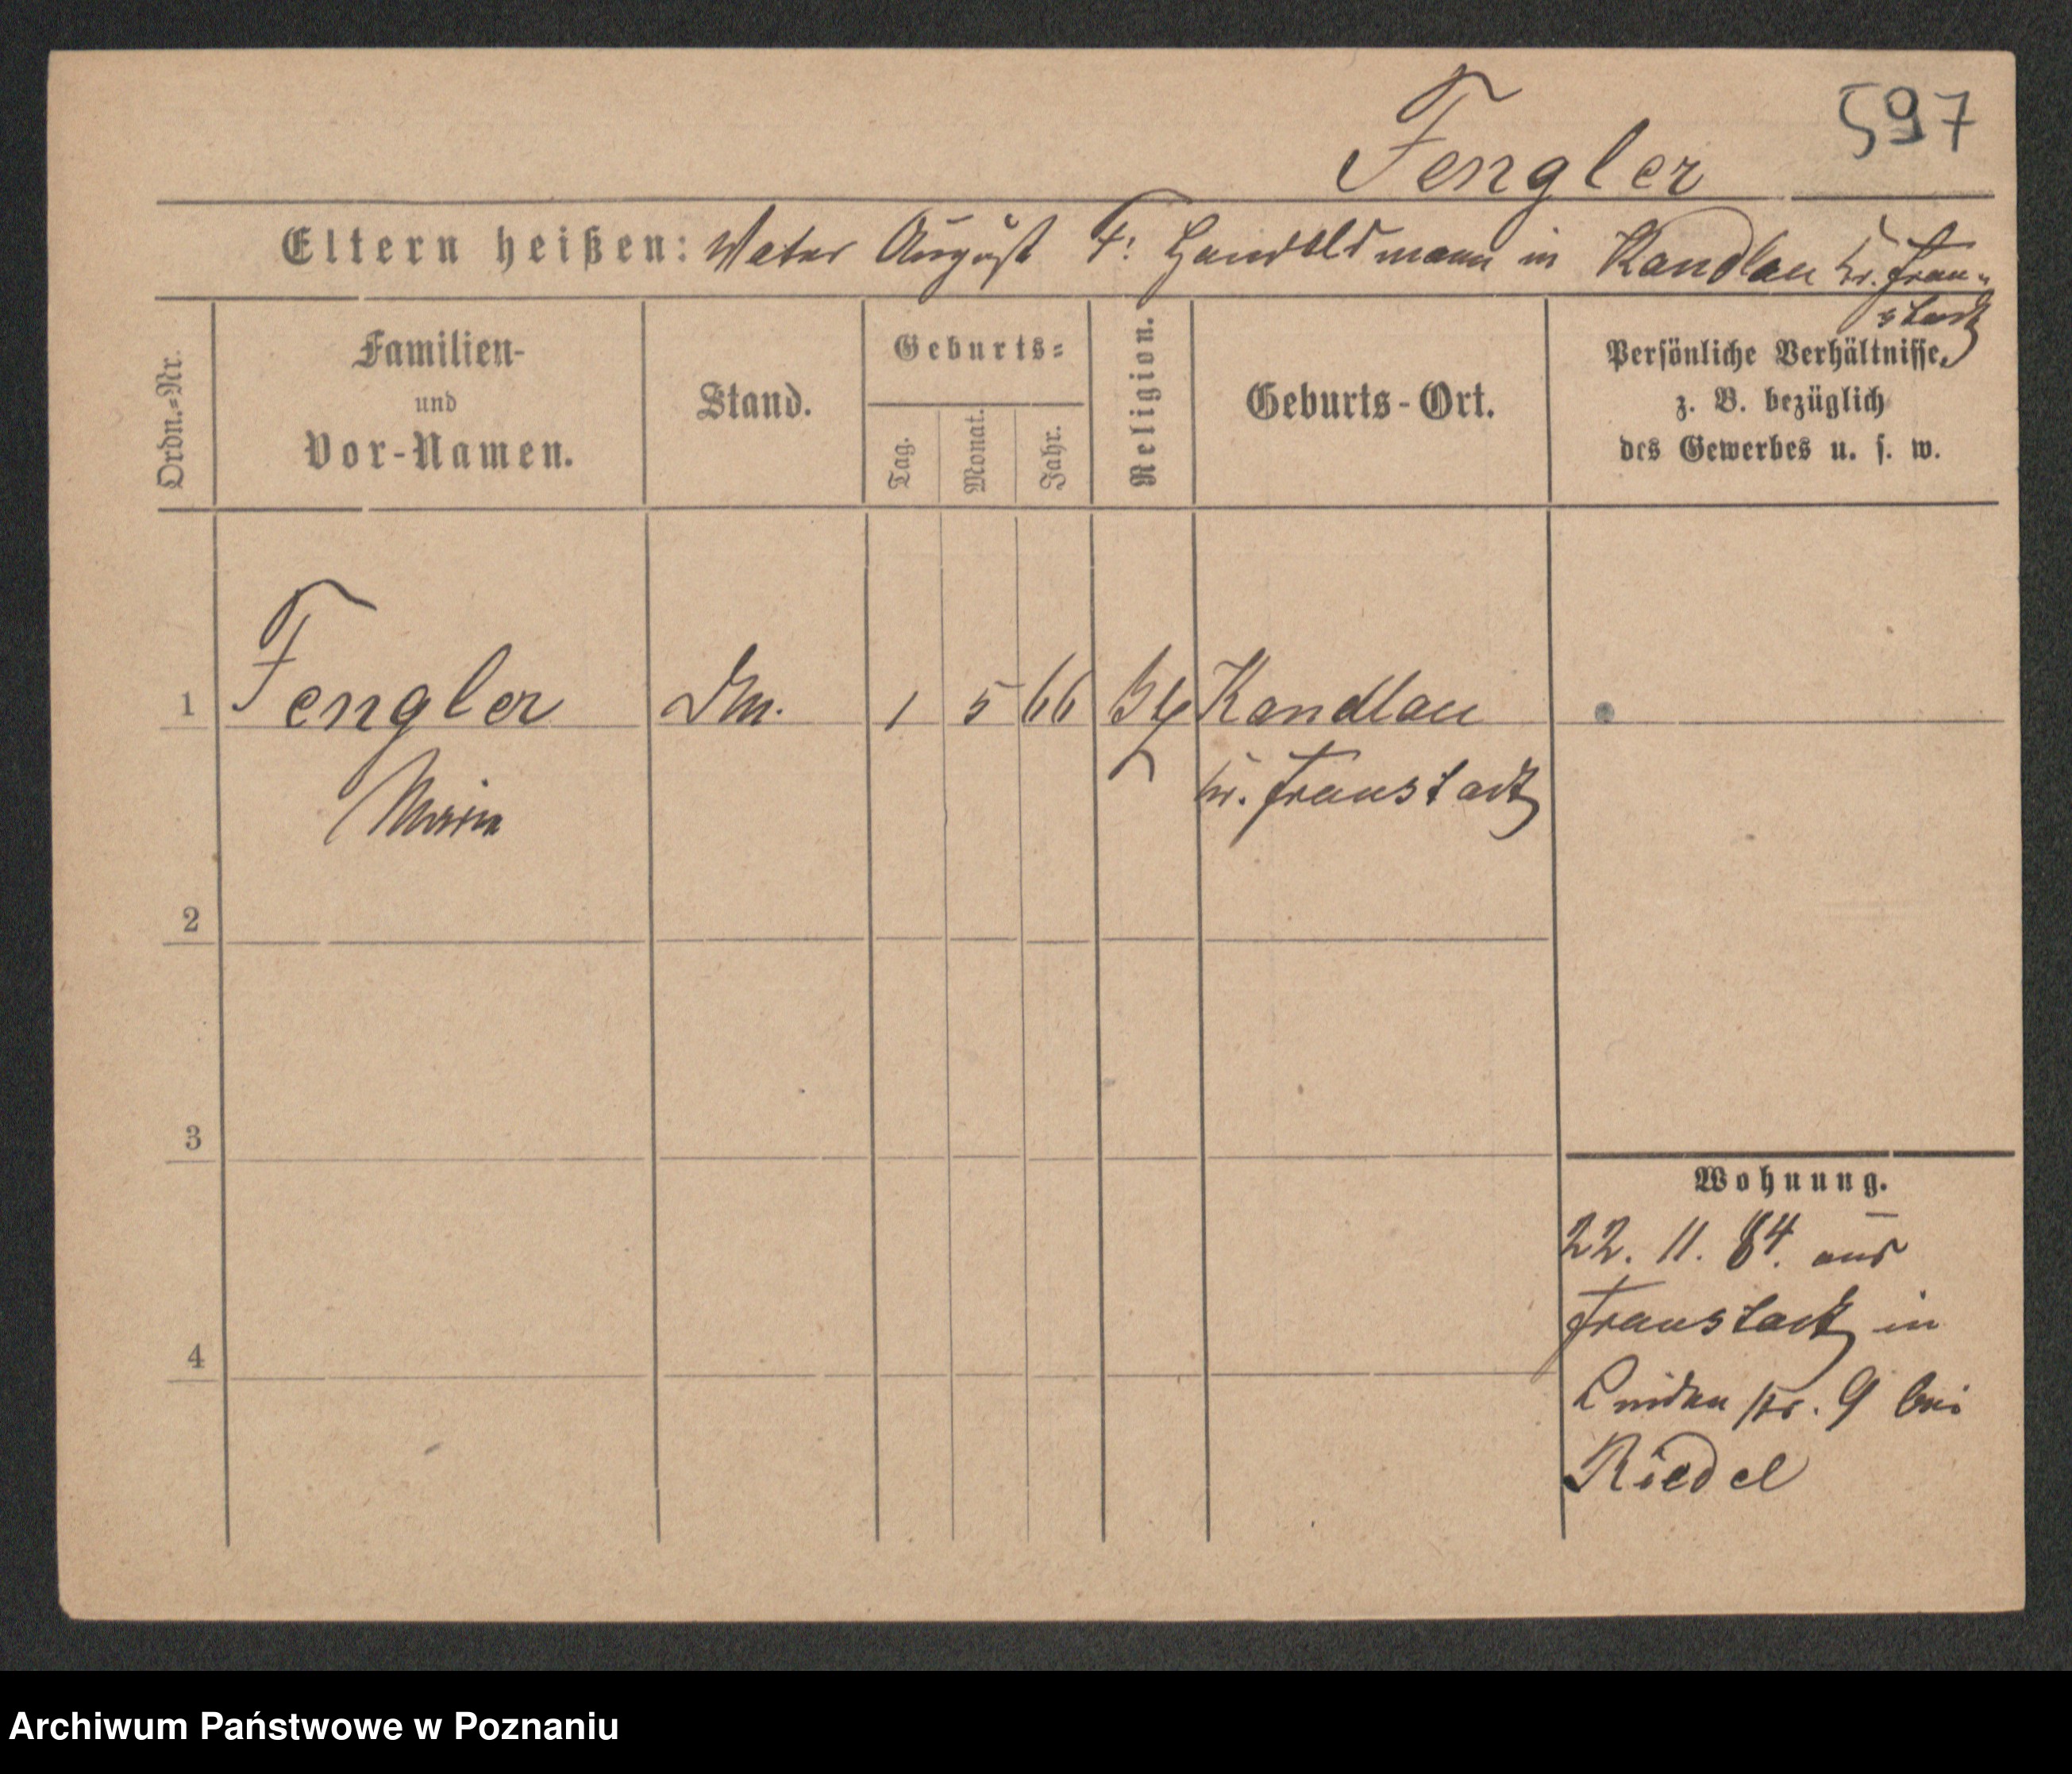 597
Fengler
Eltern heißen: Vater August F. Handelsmann in Kandlau Kr. Frau-
stadt
Ordn.-Nr.
Familien-
und
Vor-Namen.
Stand.
Geburts-
Tag.
Monat.
Jahr.
Religion.
Geburts-Ort.
Persönliche Verhältnisse,
z. B. bezüglich
des Gewerbes u. s. w.
1 Fengler 1 5 66 Kandlau
Maria Kr. Fraustadt
2
3
Wohnung.
22. 11. 84. aus
Fraustadt in
4
Lindenstr. 9 bei
Riedel
Archiwum Państwowe w Poznaniu